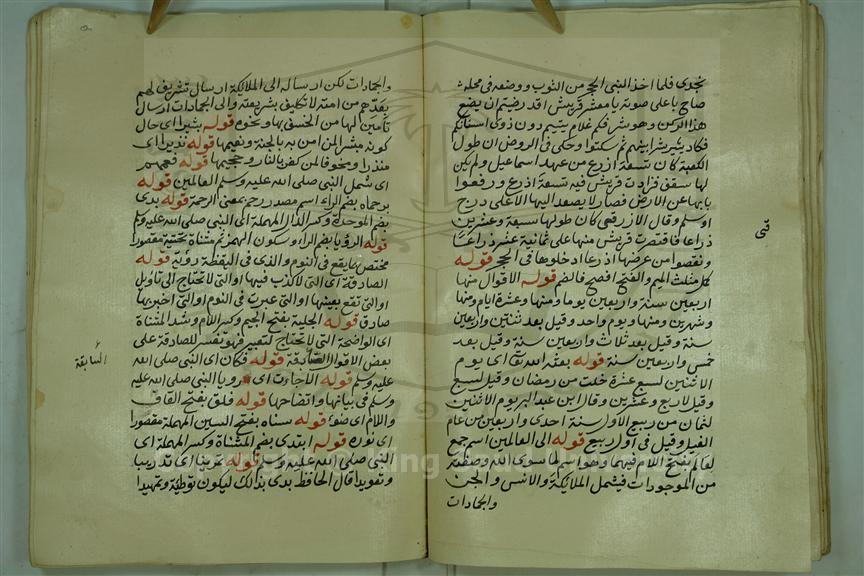 نجدى فلما اخذ النبى الحجر من الثوب ووضعه فى محله
صاح باعلى صوته يا معشر قريش اقد رضيتم ان يضع
هذا الركن وهو شرفكم غلام يتيم دون ذوى اسنانكم
فكاد يثير شرا بينهم ثم سكتوا وحكى فى الروض ان طول
الكعبة كان تسعة ازرع من عهد اسماعيل ولم يكن
لها سقف فزادت قريش فيه تسعة اذرع ورفعوا
بابها عن الارض فصار لا يصعد اليها الا على درج
اوسلم وقال الازرقى كان طولها سبعة وعشرين
ذراعا فاقتصرت قريش منها على ثمانية عشر ذراعا
ونقصوا من عرضها اذرعا ادخلوها فى الحجر قوله
كل مثلث الميم والفتح افصح فالضم قوله الاقوال منها
اربعين سنة واربعين يوما ومنها وعشرة ايام ومنها
وشهرين ومنها ويوم واحد وقيل بعد ثنتين واربعين
سنة وقيل بعد ثلاث واربعين سنة وقيل بعد
خمس واربعين سنة قوله بعثه الله تعالى يوم
الاثنين لسبع عشرة خلت من رمضان وقيل لسبع
وقيل لاربع وعشرين وقال ابن عبد البر يوم الاثنين
لثمان من ربيع الاول سنة احدى واربعين من عام
الفيل وقيل فى اول ربيع قوله الى العالمين اسم جمع
لعالم بفتح اللام فيهما وهو اسم لما سوى الله وصفته
من الموجودات فيشمل الملائكة والانس والجن
والجمادات
والجمادات لكن ارساله الى الملائكة ارسال تشريف لهم
بعدهم من امته لا تكليف بشريعته والى الجمادات ارسال
تامين لها من الخسف بها ونحوه قوله بشيرا اى حال
كونه مبشرا لمن امن به بالجنة ونعيمها قوله نذيرا اى
منذرا ومخوفا لمن كفر بالنار وجحيمها قوله فعمهم
اى شمل النبى صلى الله عليه وسلم العالمين قوله
برحماه بضم الراء اسم مصدر رحم بمعنى الرحمة قوله بدى
بضم الموحدة وكسر الدال المهملة اى النبى صلى الله عليه وسلم
قوله الرؤيا بضم الراء وسكون الهمز ثم مثناة تحتية مقصورا
مختص بما يقع فى النوم والذى فى اليقظة رؤية قوله
الصادقة اى التى لا كذب فيها او التى لا تحتاج الى تاويل
او التى تقع بعينها او التى عبرت فى النوم او التى اخبر بها
صادق قوله الجلية بفتح الجيم وكسر اللام وشد المثناة
اى الواضحة التى لا تحتاج لتعبير فهو تفسير للصادقة على
بعض الاقوال السابقة قوله فكان اى النبى صلى الله
عليه وسلم قوله الا جاءت اى رويا النبى صلى الله عليه
وسلم فى بيانها واتضاحها قوله فلق بفتح القاف
واللام اى ضوء قوله سناه بفتح السين المهملة مقصورا
اى نوره قوله ابتدى بضم المثناة وكسر المهملة اى
النبى صلى الله عليه وسلم قوله تمرينا اى تدريبا
وتعويدا قال الحافظ بدى بذالك ليكون توطئة وتمهيدا
السابقة